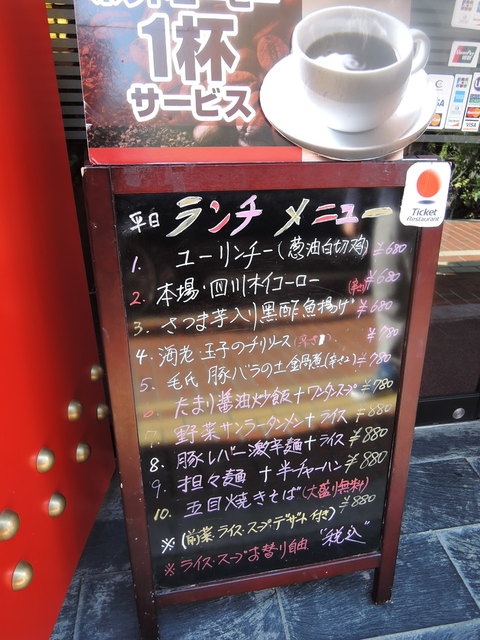 1杯
サービス
Ticket
Restaurant
平日 ランチ メニュー
1. ユーリンチー(葱油白切鶏) ¥680
2. 本場・四川ホイコーロー (辛さ) ¥680
3. さつま芋入り黒酢魚揚げ ¥680
4. 海老と玉子のチリソース ¥780
5. 毛氏 豚バラの土鍋煮(辛さ2) ¥780
6. たまり醤油炒飯+ワンタンスープ ¥780
7. 野菜サンラータンメン+ライス ¥880
8. 豚レバー激辛麺+ライス ¥880
9. 担々麺 +半チャーハン ¥880
10. 五目焼きそば(大盛り無料) ¥880
※(前菜・ライス・スープ・デザート付き)
※ライス・スープお替り自由 "税込"